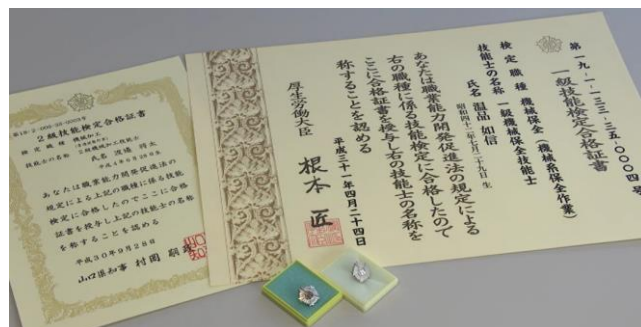 第一九-一-一三三-三五-〇〇〇四号
一級技能検定合格証書
検定職種 機械保全(機械系保全作業)
技能士の名称 一級機械保全技能士
氏名 温品 如信
昭和四十二年七月二十九日生
あなたは職業能力開発促進法の規定による
右の職種に係る技能検定に合格したので
ここに合格証書を授与し右の技能士の名称を
称することを認める
平成三十一年四月二十四日
厚生労働大臣 根本 匠
2級技能検定合格証書
検定職種 機械加工
技能士の名称
氏名 渡邉 将太
あなたは職業能力開発促進法の
規定による上記の職種に係る技能
検定に合格したのでここに合格
証書を授与し上記の技能士の名称
を称することを認める
平成30年9月28日
山口県知事 村岡 嗣政